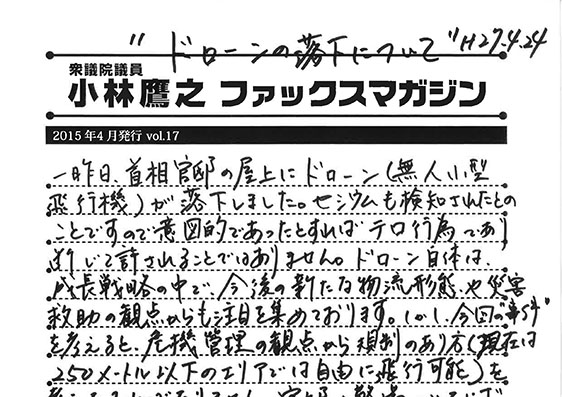 "ドローンの落下について" H27.4.24
衆議院議員
小林鷹之 ファックスマガジン
2015年4月発行 vol.17
一昨日、首相官邸の屋上にドローン(無人小型
飛行機)が落下しました。セシウムも検知されたとの
ことですので意図的であったとすればテロ行為であり
断じて許されることではありません。ドローン自体は、
成長戦略の中で、今後の新たな物流形態や災害
救助の観点からも注目を集めております。しかし、今回の"事件"
を考えると、危機管理の観点から規制のあり方(現在は
250メートル以下のエリアでは自由に飛行可能)を